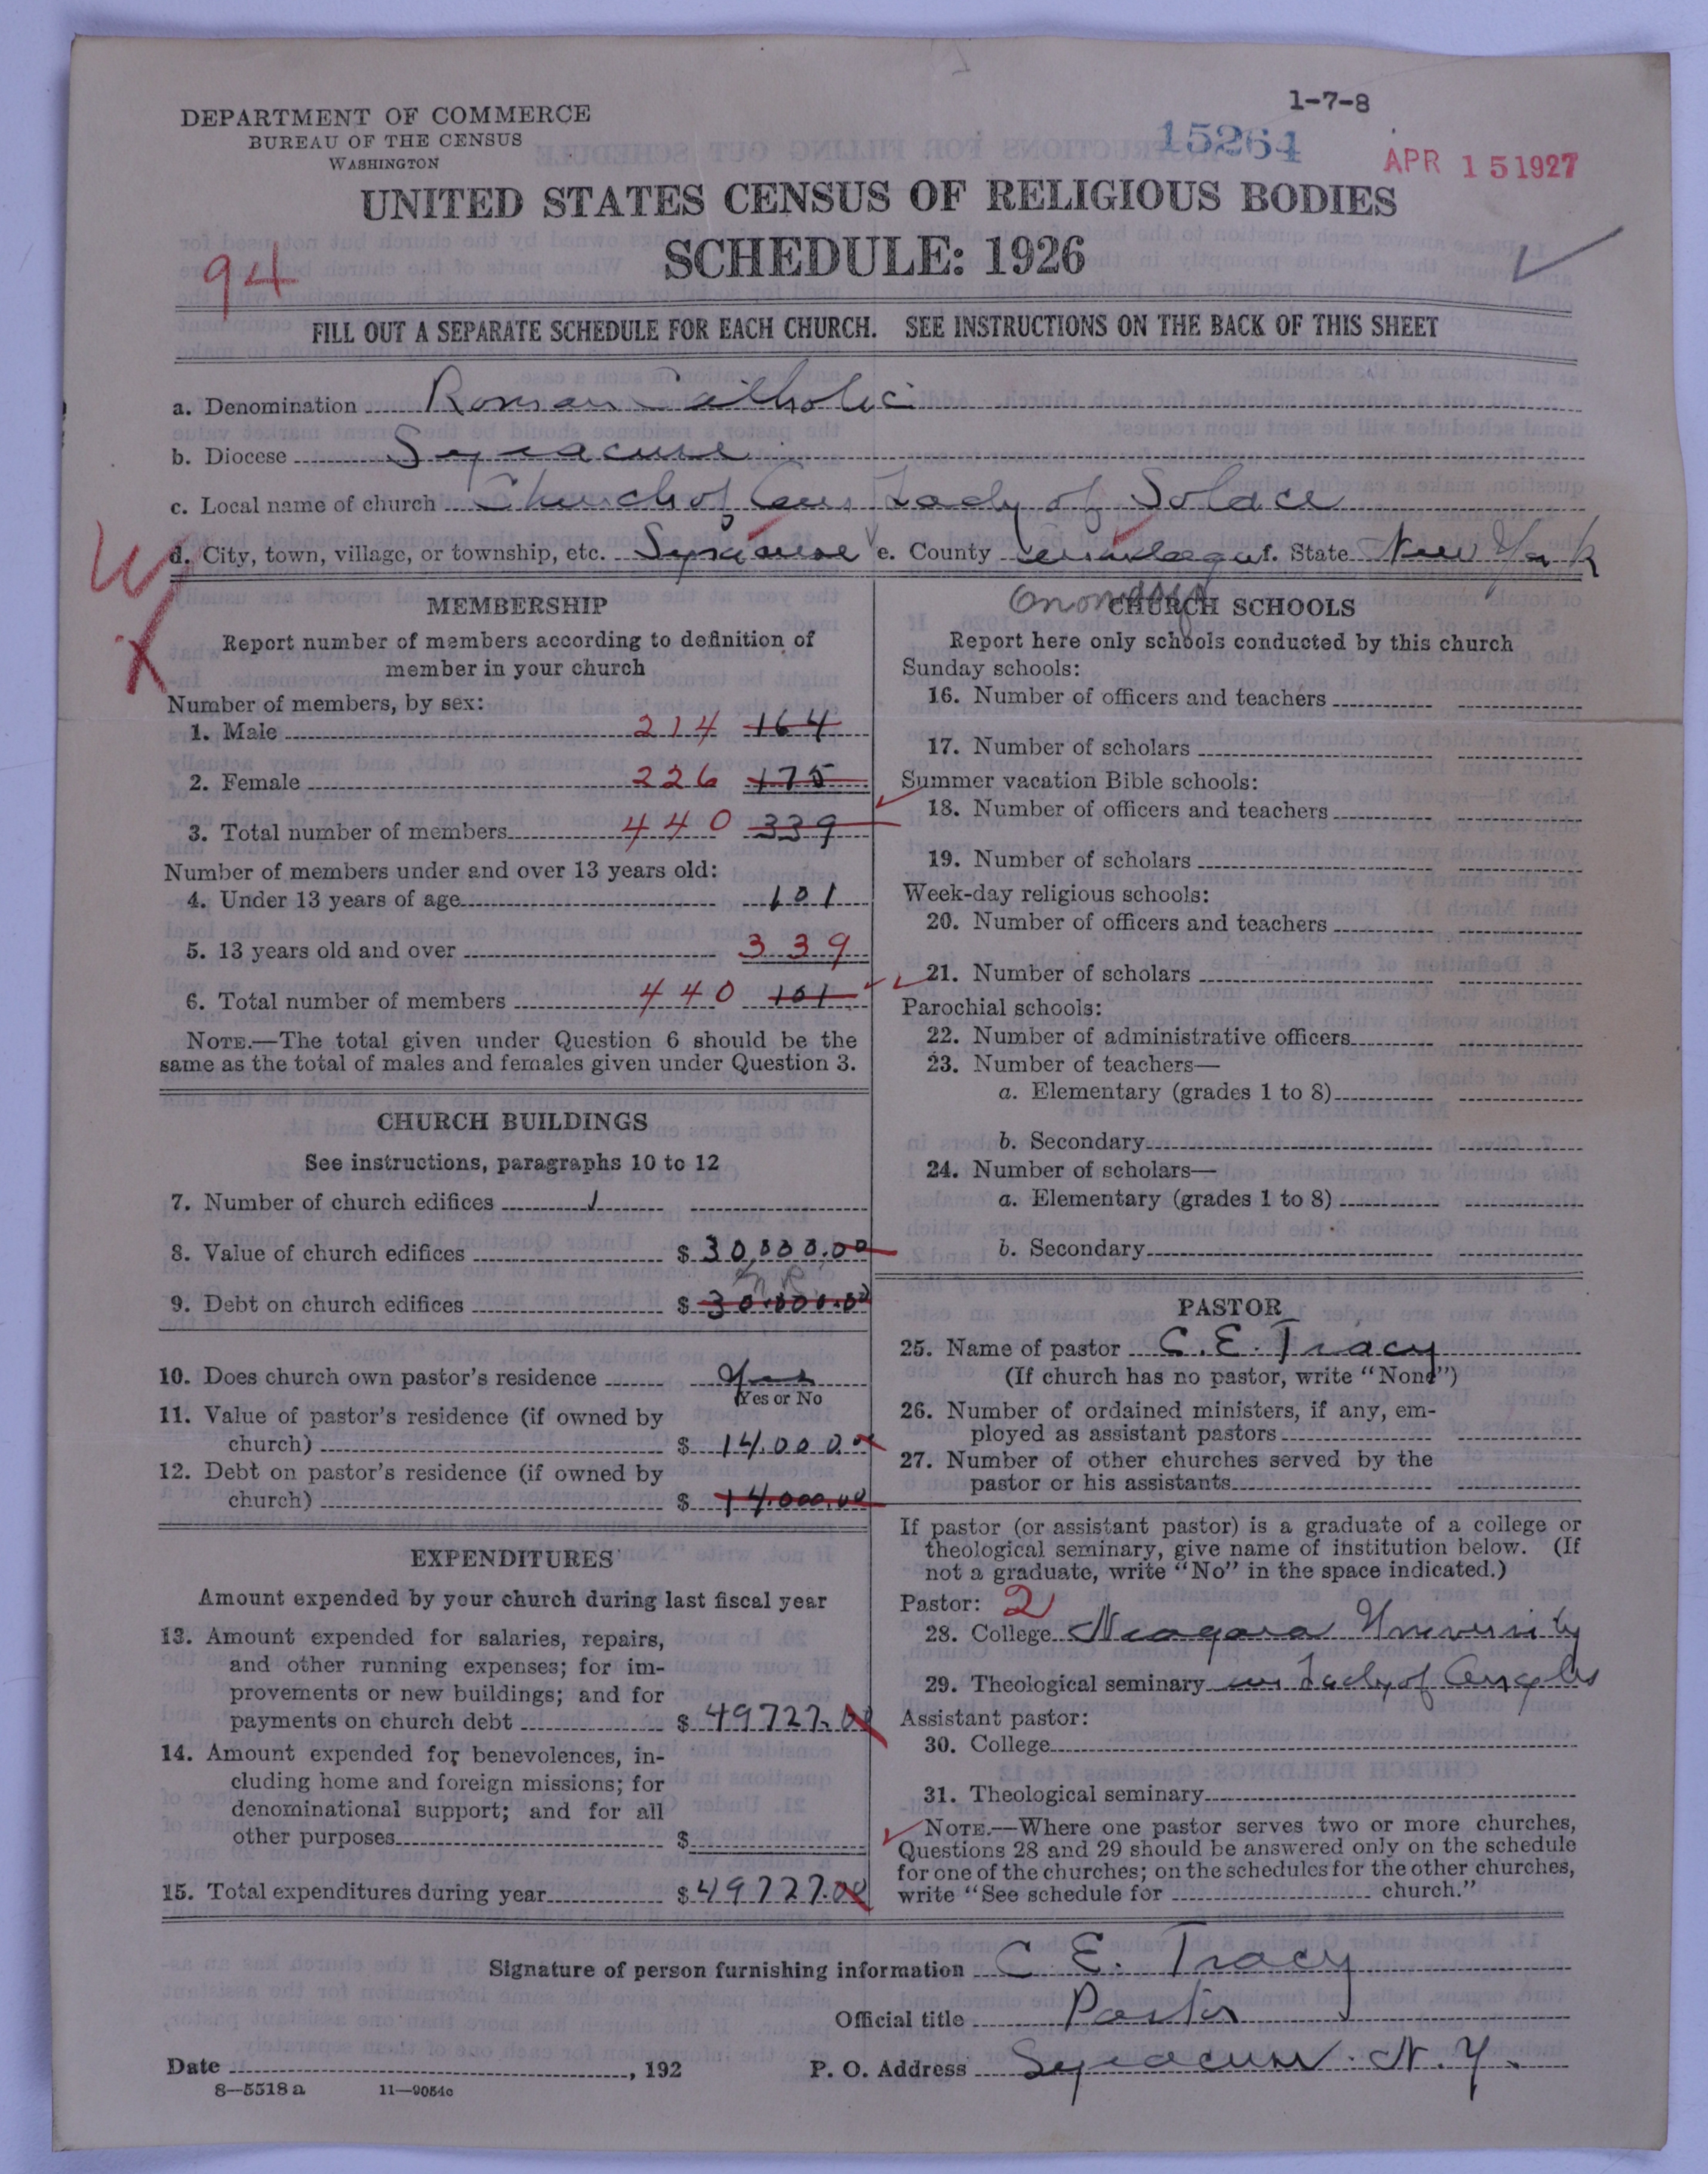 1-7-8
DEPARTMENT OF COMMERCE
BUREAU OF THE CENSUS
WASHINGTON
15264
APR 15 1927
UNITED STATES CENSUS OF RELIGIOUS BODIES
SCHEDULE: 1926
94
FILL OUT A SEPARATE SCHEDULE FOR EACH CHURCH. SEE INSTRUCTIONS ON THE BACK OF THIS SHEET
a. Denomination Roman Catholic
b. Diocese Syracuse
c. Local name of church Church of Our Lady of Solace
d. City, town, village, or township, etc. Syracuse e. County f. State New York
Onondaga
W
X
MEMBERSHIP
Report number of members according to definition of
member in your church
Number of members, by sex:
1. Male 214 164
2. Female 226 175
3. Total number of members 440 339
Number of members under and over 13 years old:
4. Under 13 years of age 101
5. 13 years old and over 339
6. Total number of members 440 101
NOTE.—The total given under Question 6 should be the
same as the total of males and females given under Question 3.
CHURCH BUILDINGS
See instructions, paragraphs 10 to 12
7. Number of church edifices 1
8. Value of church edifices $ 30,000.00
9. Debt on church edifices $ 30.000.00
10. Does church own pastor's residence Yes
Yes or No
11. Value of pastor's residence (if owned by
church) $ 14.000.00
12. Debt on pastor's residence (if owned by
church) $ 14.000.00
EXPENDITURES
Amount expended by your church during last fiscal year
13. Amount expended for salaries, repairs,
and other running expenses; for im-
provements or new buildings; and for
payments on church debt $ 49727.00
14. Amount expended for benevolences, in-
cluding home and foreign missions; for
denominational support; and for all
other purposes $
15. Total expenditures during year $ 49727.00
CHURCH SCHOOLS
Report here only schools conducted by this church
Sunday schools:
16. Number of officers and teachers
17. Number of scholars
Summer vacation Bible schools:
18. Number of officers and teachers
19. Number of scholars
Week-day religious schools:
20. Number of officers and teachers
21. Number of scholars
Parochial schools:
22. Number of administrative officers
23. Number of teachers—
a. Elementary (grades 1 to 8)
b. Secondary
24. Number of scholars—
a. Elementary (grades 1 to 8)
b. Secondary
PASTOR
25. Name of pastor C. E. Tracy
(If church has no pastor, write "None")
26. Number of ordained ministers, if any, em-
ployed as assistant pastors
27. Number of other churches served by the
pastor or his assistants
If pastor (or assistant pastor) is a graduate of a college or
theological seminary, give name of institution below. (If
not a graduate, write "No" in the space indicated.)
Pastor: 2
28. College Niagara University
29. Theological seminary Our Lady of Angels
Assistant pastor:
30. College
31. Theological seminary
NOTE.—Where one pastor serves two or more churches,
Questions 28 and 29 should be answered only on the schedule
for one of the churches; on the schedules for the other churches,
write "See schedule for church."
Signature of person furnishing information C. E. Tracy
Official title Pastor
Date , 192 P. O. Address Syracuse. N. Y.
8—5518a 11—9054c